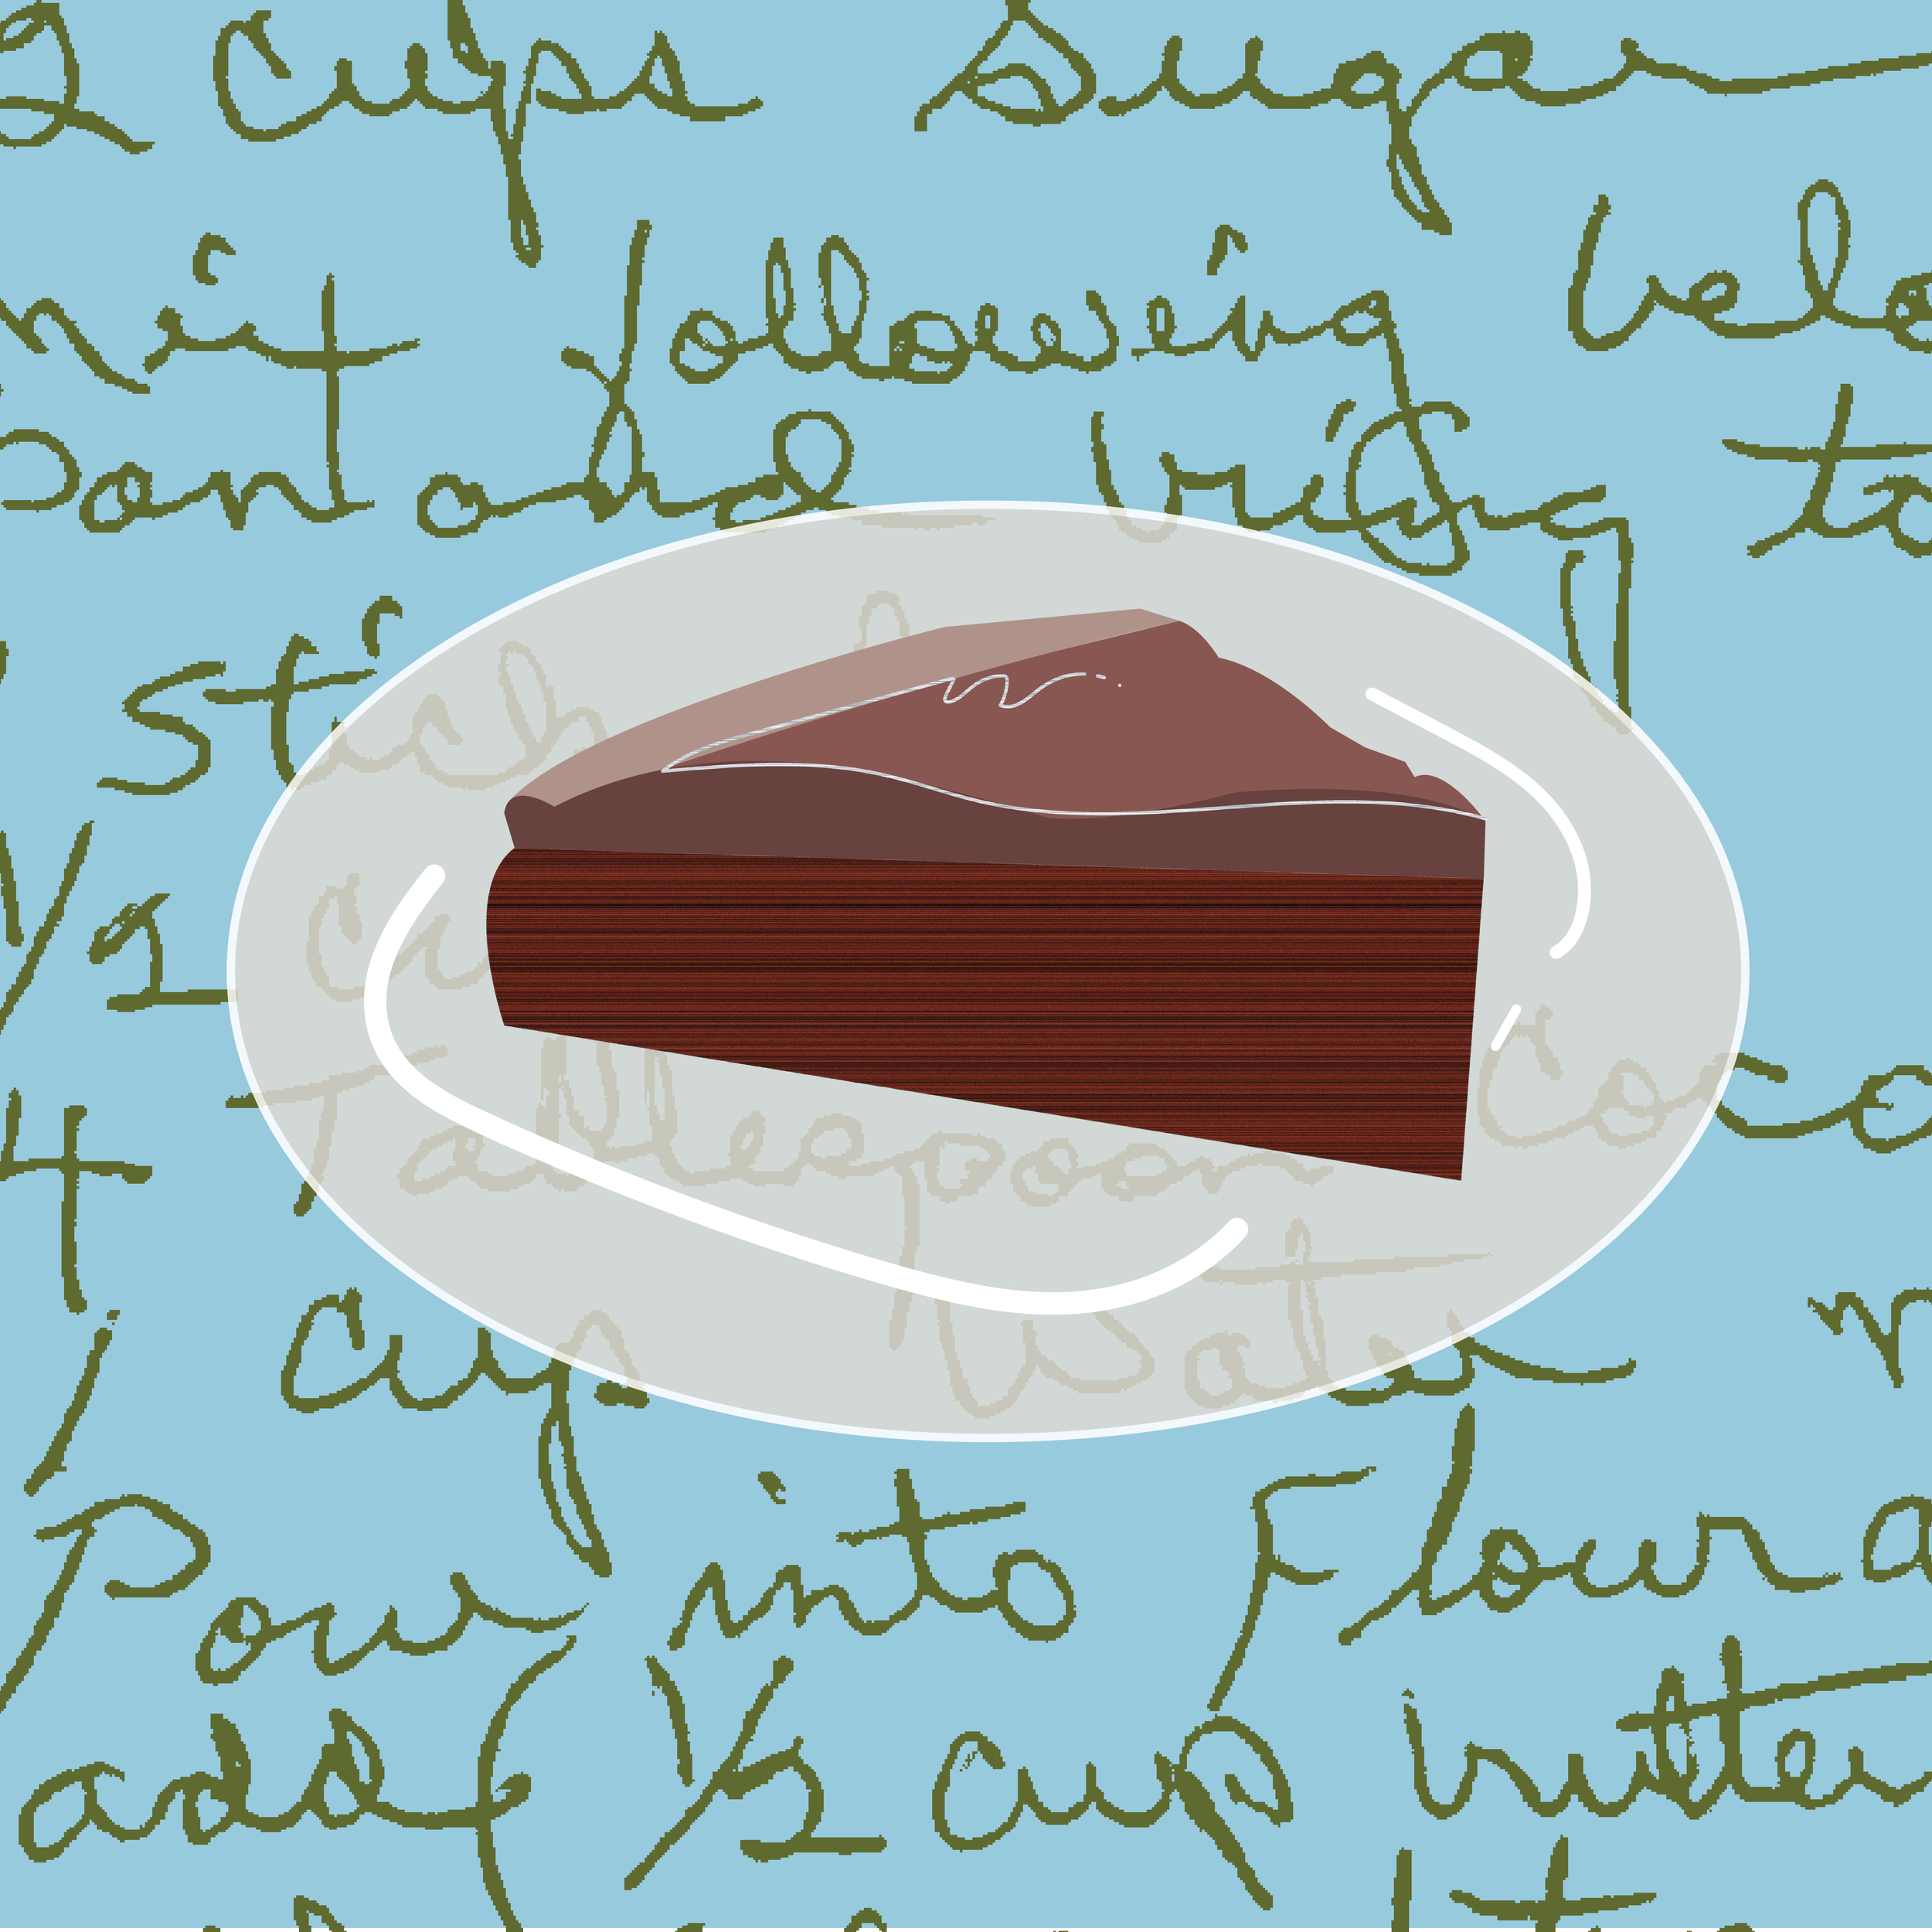 2 cups Sugar
mit following
and bring to
Stick
1/2 cu
4 Tablespoon Coco
1 cup Water
Pour into Flour
add 1/2 cup butter